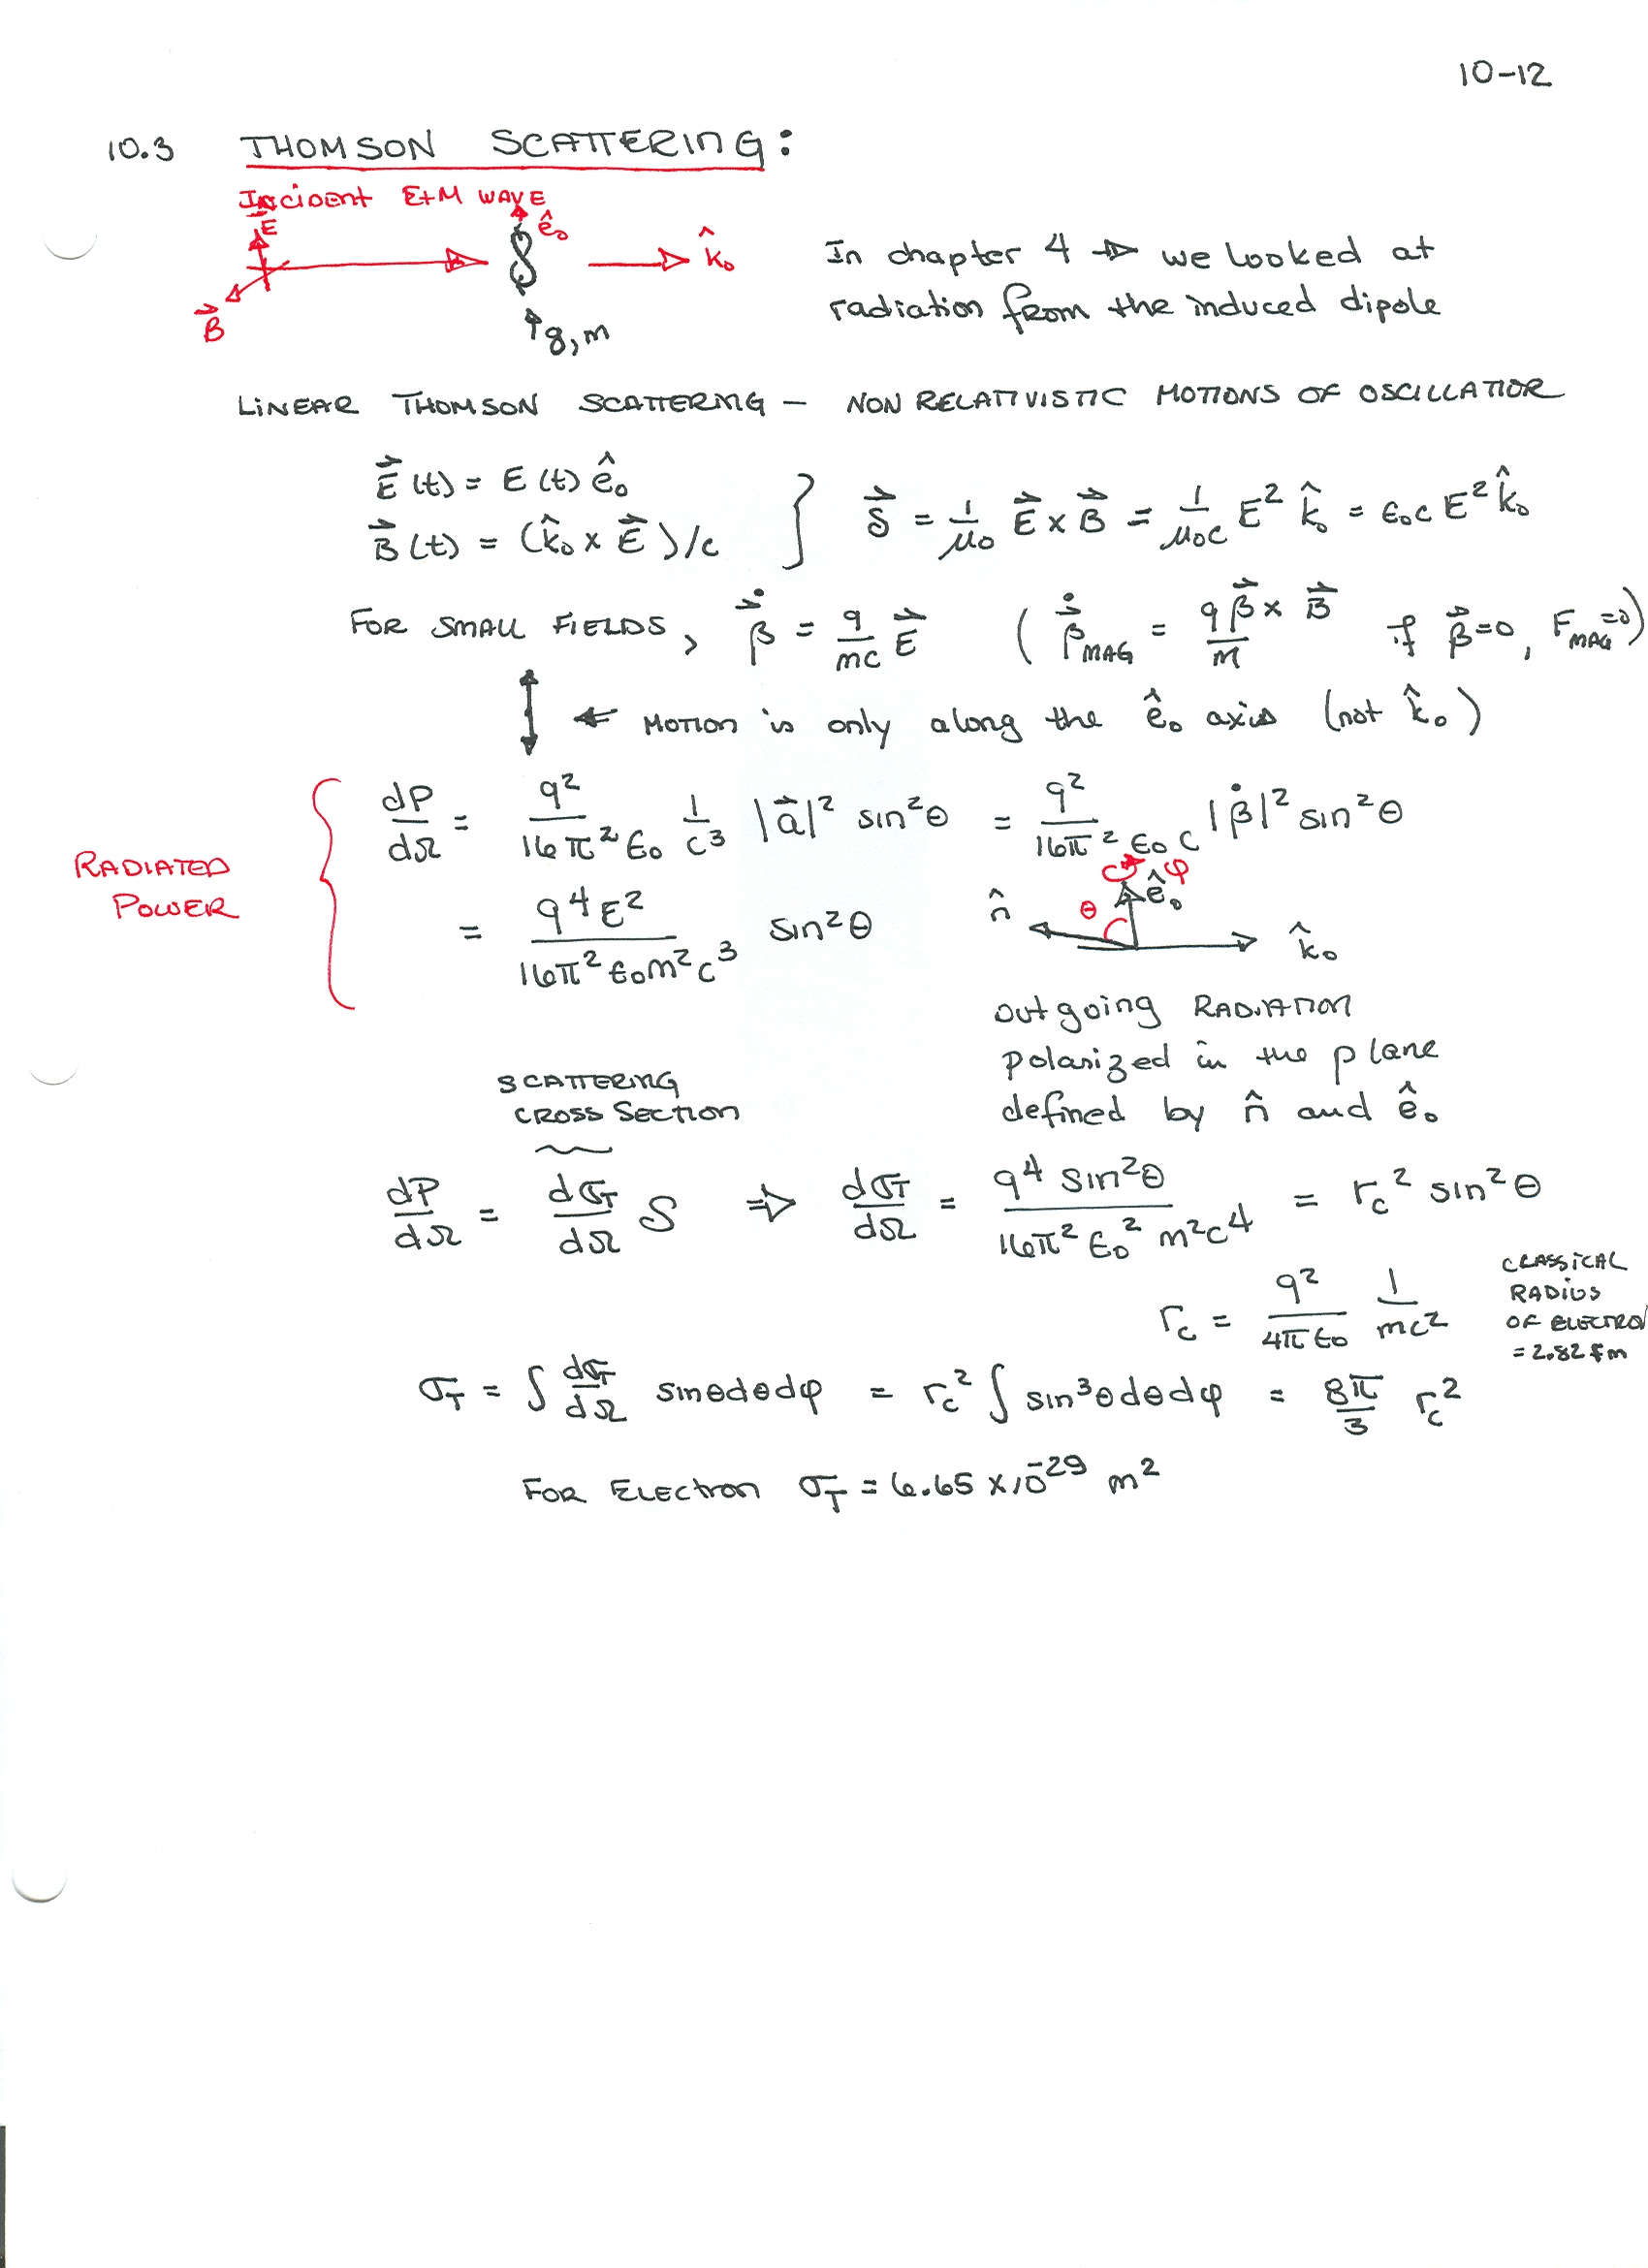 10-12
10.3 THOMSON SCATTERING:
Incident E+M WAVE
E
ê₀
k̂₀
B⃗
q, m
In chapter 4 → we looked at
radiation from the induced dipole
LINEAR THOMSON SCATTERING – NON RELATIVISTIC MOTIONS OF OSCILLATIOR
E⃗(t) = E(t) ê₀
B⃗(t) = (k̂₀ × E⃗)/c } S⃗ = 1/μ₀ E⃗ × B⃗ = 1/μ₀c E² k̂₀ = ε₀c E² k̂₀
FOR SMALL FIELDS, β⃗̇ = q/mc E⃗ ( β⃗̇_MAG = qβ⃗ × B⃗/m if β⃗=0, F_MAG=0)
← MOTION is only along the ê₀ axis (not k̂₀)
RADIATED
POWER
dP/dΩ = q²/16π²ε₀ 1/c³ |a⃗|² sin²θ = q²/16π²ε₀c |β̇|² sin²θ
= q⁴E²/16π²ε₀m²c³ sin²θ
n̂ θ ê₀ φ k̂₀
outgoing RADIATION
polarized in the plane
defined by n̂ and ê₀
SCATTERING
CROSS SECTION
dP/dΩ = dσ_T/dΩ S ⇒ dσ_T/dΩ = q⁴ sin²θ/16π²ε₀²m²c⁴ = r_c² sin²θ
r_c = q²/4πε₀ 1/mc²
CLASSICAL
RADIUS
OF ELECTRO
= 2.82 fm
σ_T = ∫ dσ_T/dΩ sinθdθdφ = r_c² ∫ sin³θdθdφ = 8π/3 r_c²
FOR ELECTRON σ_T = 6.65 × 10⁻²⁹ m²